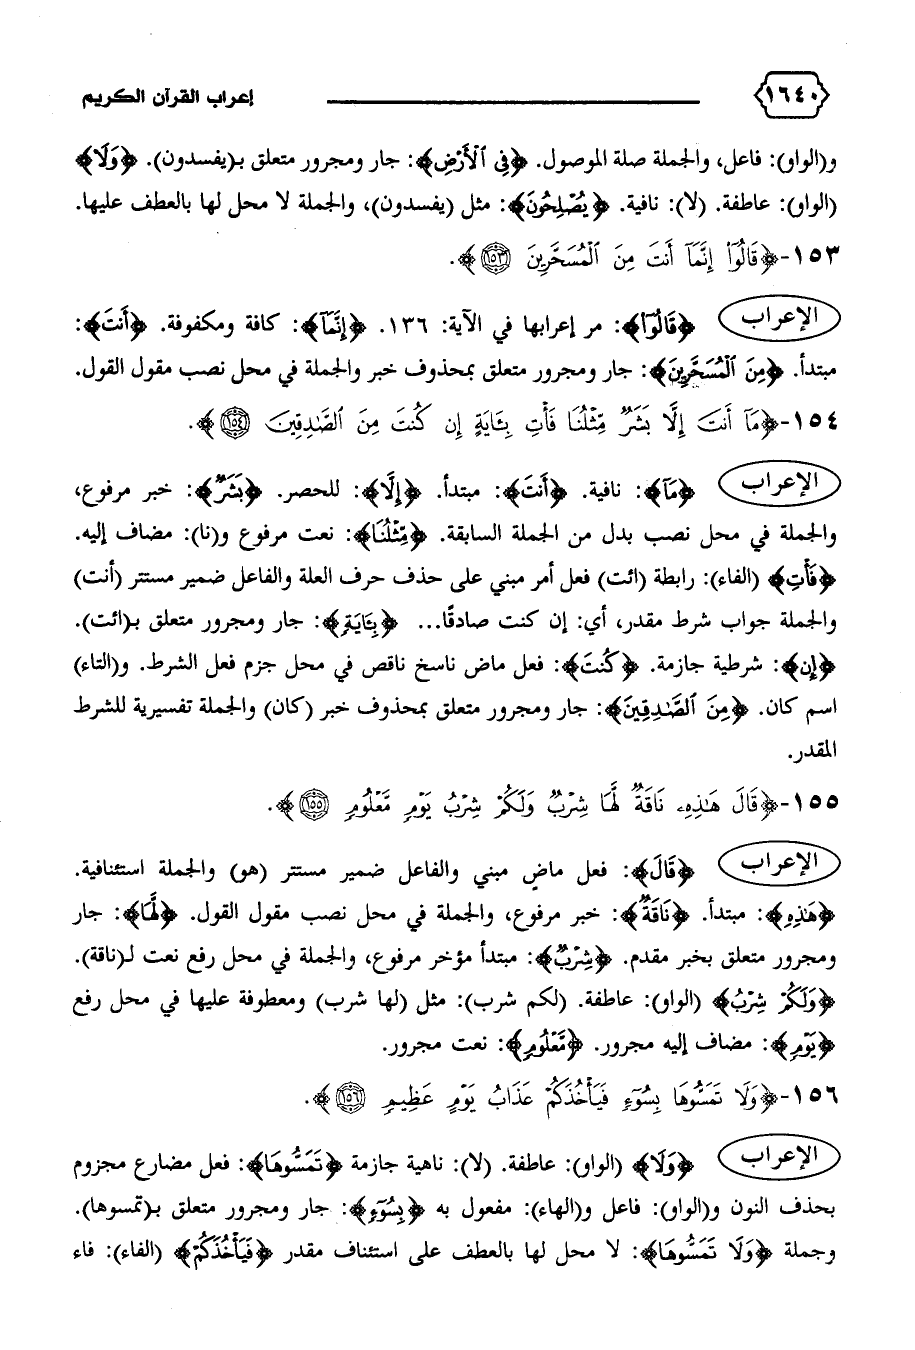 ١٦٤٠ إعراب القرآن الكريم
و(الواو): فاعل، والجملة صلة الموصول. ﴿فِي الْأَرْضِ﴾: جار ومجرور متعلق بـ(يفسدون). ﴿وَلَا﴾
(الواو): عاطفة. (لا): نافية. ﴿يُصْلِحُونَ﴾: مثل (يفسدون)، والجملة لا محل لها بالعطف عليها.
١٥٣-﴿قَالُوٓا۟ إِنَّمَآ أَنتَ مِنَ ٱلْمُسَحَّرِينَ ١٥٣﴾.
الإعراب ﴿قَالُوٓا۟﴾: مر إعرابها في الآية: ١٣٦. ﴿إِنَّمَآ﴾: كافة ومكفوفة. ﴿أَنتَ﴾:
مبتدأ. ﴿مِنَ ٱلْمُسَحَّرِينَ﴾: جار ومجرور متعلق بمحذوف خبر والجملة في محل نصب مقول القول.
١٥٤-﴿مَآ أَنتَ إِلَّا بَشَرٌ مِّثْلُنَا فَأْتِ بِـَٔايَةٍ إِن كُنتَ مِنَ ٱلصَّـٰدِقِينَ ١٥٤﴾.
الإعراب ﴿مَآ﴾: نافية. ﴿أَنتَ﴾: مبتدأ. ﴿إِلَّا﴾: للحصر. ﴿بَشَرٌ﴾: خبر مرفوع،
والجملة في محل نصب بدل من الجملة السابقة. ﴿مِّثْلُنَا﴾: نعت مرفوع و(نا): مضاف إليه.
﴿فَأْتِ﴾ (الفاء): رابطة (ائت) فعل أمر مبني على حذف حرف العلة والفاعل ضمير مستتر (أنت)
والجملة جواب شرط مقدر، أي: إن كنت صادقًا... ﴿بِـَٔايَةٍ﴾: جار ومجرور متعلق بـ(ائت).
﴿إِن﴾: شرطية جازمة. ﴿كُنتَ﴾: فعل ماض ناسخ ناقص في محل جزم فعل الشرط. و(التاء)
اسم كان. ﴿مِنَ ٱلصَّـٰدِقِينَ﴾: جار ومجرور متعلق بمحذوف خبر (كان) والجملة تفسيرية للشرط
المقدر.
١٥٥-﴿قَالَ هَـٰذِهِۦ نَاقَةٌ لَّهَا شِرْبٌ وَلَكُمْ شِرْبُ يَوْمٍ مَّعْلُومٍ ١٥٥﴾.
الإعراب ﴿قَالَ﴾: فعل ماضٍ مبني والفاعل ضمير مستتر (هو) والجملة استئنافية.
﴿هَـٰذِهِ﴾: مبتدأ. ﴿نَاقَةٌ﴾: خبر مرفوع، والجملة في محل نصب مقول القول. ﴿لَّهَا﴾: جار
ومجرور متعلق بخبر مقدم. ﴿شِرْبٌ﴾: مبتدأ مؤخر مرفوع، والجملة في محل رفع نعت لـ(ناقة).
﴿وَلَكُمْ شِرْبُ﴾ (الواو): عاطفة. (لكم شرب): مثل (لها شرب) ومعطوفة عليها في محل رفع
﴿يَوْمٍ﴾: مضاف إليه مجرور. ﴿مَّعْلُومٍ﴾: نعت مجرور.
١٥٦-﴿وَلَا تَمَسُّوهَا بِسُوٓءٍ فَيَأْخُذَكُمْ عَذَابُ يَوْمٍ عَظِيمٍ ١٥٦﴾.
الإعراب ﴿وَلَا﴾ (الواو): عاطفة. (لا): ناهية جازمة ﴿تَمَسُّوهَا﴾: فعل مضارع مجزوم
بحذف النون و(الواو): فاعل و(الهاء): مفعول به ﴿بِسُوٓءٍ﴾: جار ومجرور متعلق بـ(تمسوها).
وجملة ﴿وَلَا تَمَسُّوهَا﴾: لا محل لها بالعطف على استئناف مقدر ﴿فَيَأْخُذَكُمْ﴾ (الفاء): فاء